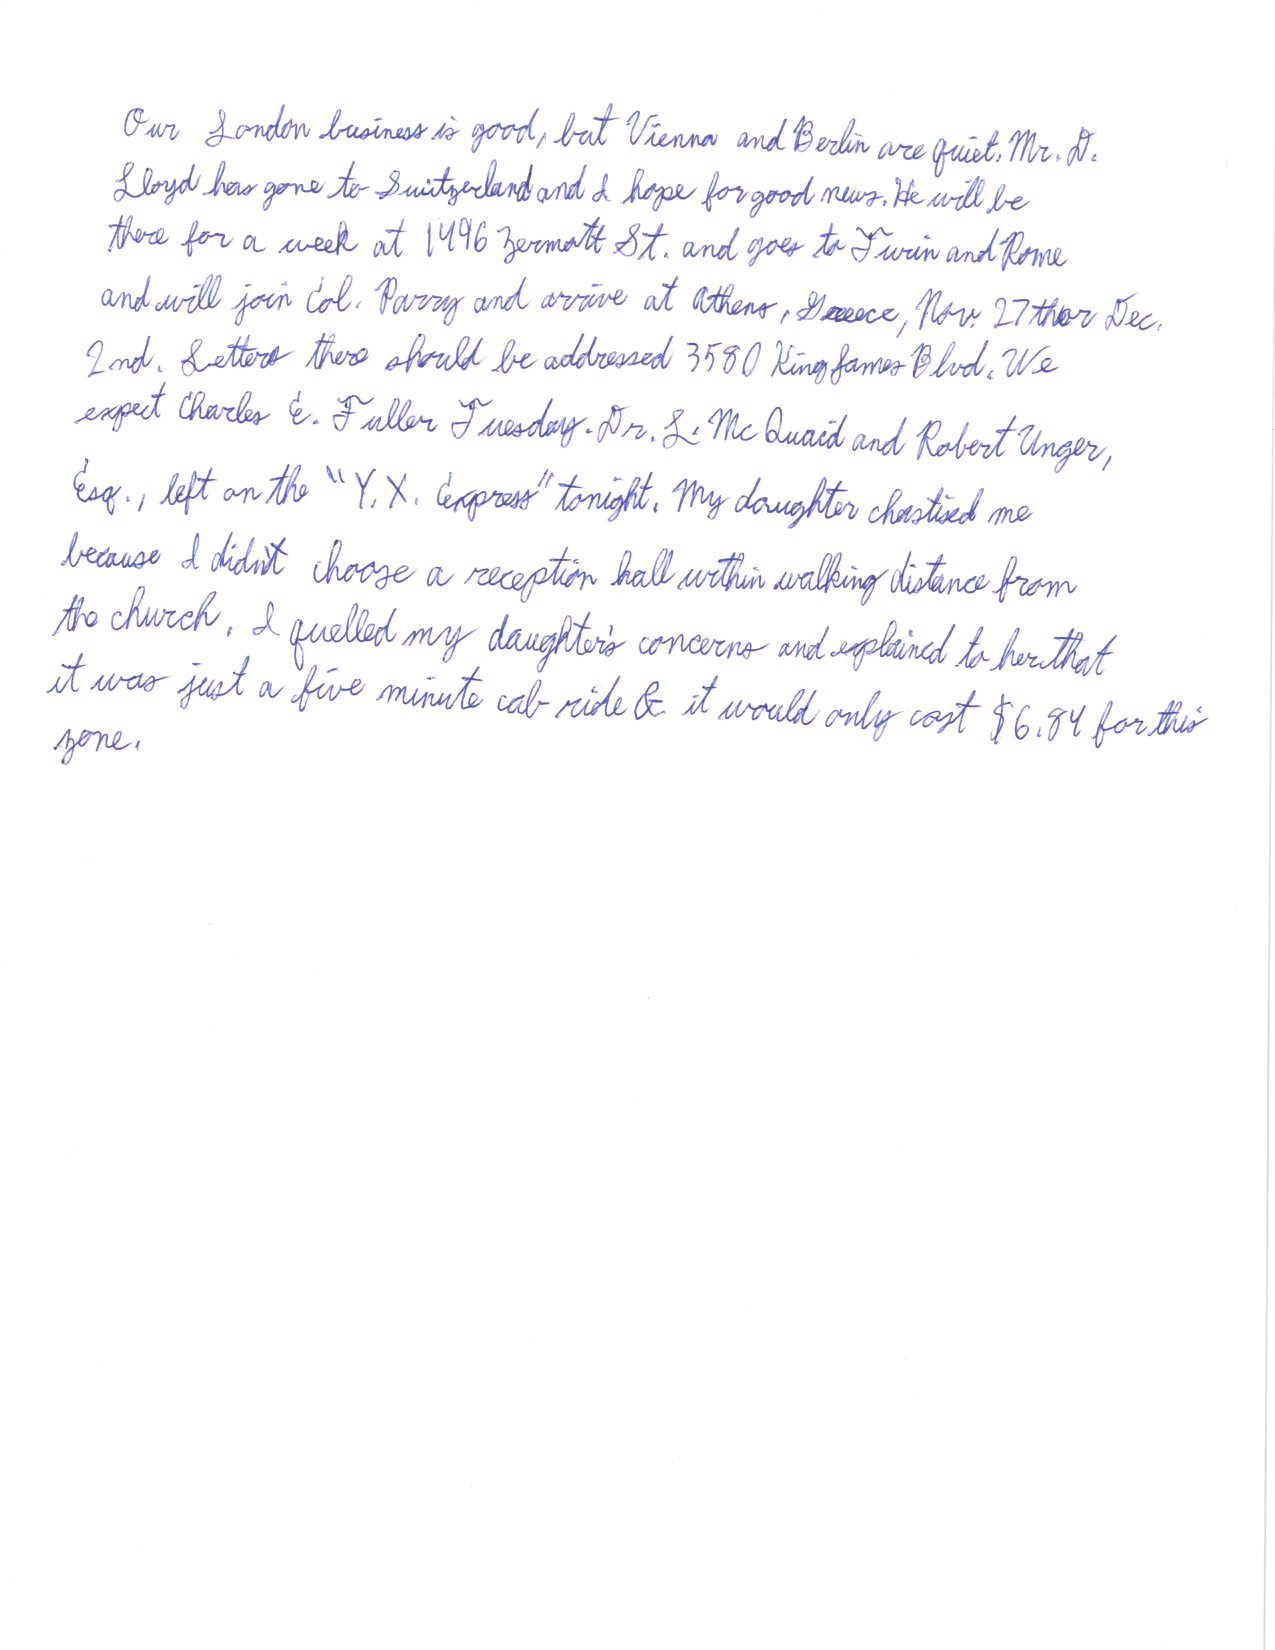 Our London business is good, but Vienna and Berlin are quiet. Mr. D.
Lloyd has gone to Switzerland and I hope for good news. He will be
there for a week at 1496 Zermott St. and goes to Turin and Rome
and will join Col. Parry and arrive at Athens, Greece, Nov. 27th or Dec.
2nd. Letters there should be addressed 3580 King James Blvd. We
expect Charles E. Fuller Tuesday. Dr. L. McQuaid and Robert Unger,
Esq., left on the "Y.X. Express" tonight. My daughter chastised me
because I didn't choose a reception hall within walking distance from
the church. I quelled my daughter's concerns and explained to her that
it was just a five minute cab ride & it would only cost $6.84 for this
zone.